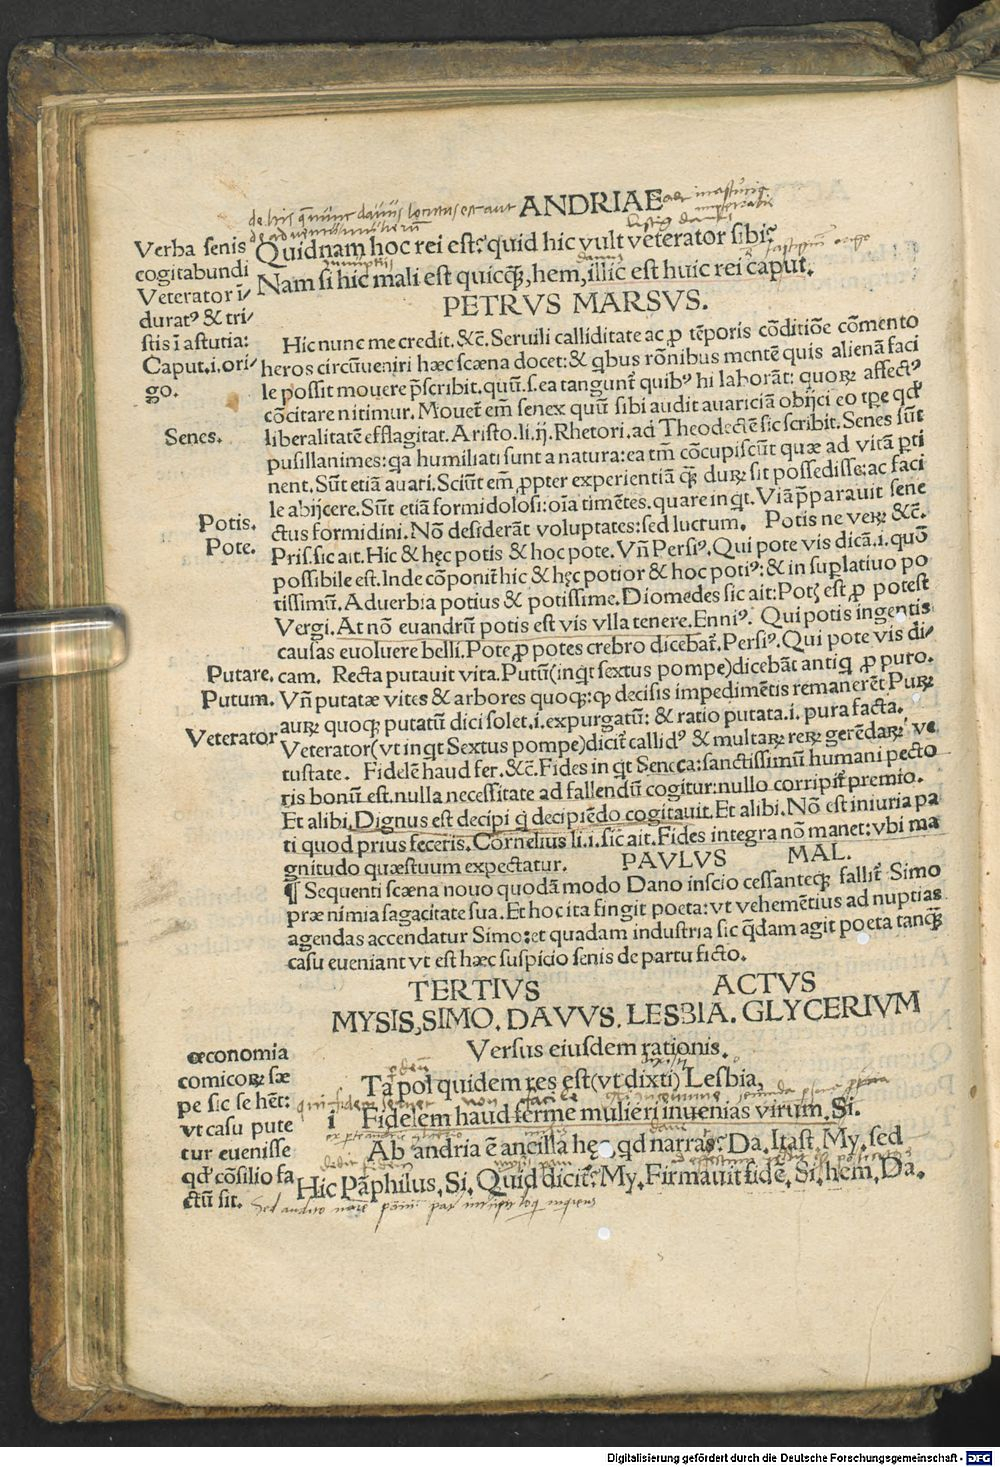 ANDRIAE
Quidnam hoc rei est? quid hic vult veterator sibi?
Nam si hic mali est quicqꝫ, hem, illic est huic rei caput.
Verba senis
cogitabundi
Veterator ī/
durat⁹ & tri/
stis ī astutia:
Caput.i.ori/
go.
PETRVS MARSVS.
Hic nunc me credit. &c̄. Seruili calliditate ac ꝓ tēporis cōditiōe cōmento
heros circūueniri hæc scæna docet: & qbus rōnibus mentē quis alienā faci
le possit mouere p̄scribit. quū.s.ea tangunt̄ quib⁹ hi laborāt: quoꝝ affect⁹
cōcitare nitimur. Mouet̄ em̄ senex quū sibi audit auariciā obijci eo tp̄e qd̄
Senes.
liberalitatē efflagitat. Aristo.li.ij. Rhetori. ad Theodectē sic scribit. Senes sūt
pusillanimes: qa humiliati sunt a natura: ea tm̄ cōcupiscūt quæ ad vitā ꝑti
nent. Sūt etiā auari. Sciūt em̄ ꝓpter experientiā qꝫ duꝝ sit possedisse: ac faci
le abijcere. Sūt etiā formidolosi: oīa timētes. quare inqt. Viā p̄parauit sene
Potis.
ctus formidini. Nō desiderāt voluptates: sed lucrum. Potis ne veꝝ &c̄.
Pote.
Pris. sic ait. Hic & hęc potis & hoc pote. Vn̄ Persi⁹. Qui pote vis dicā.i. quō
possibile est. Inde cōponit̄ hic & hęc potior & hoc poti⁹: & in suꝑlatiuo po
tissimū. Aduerbia potius & potissime. Diomedes sic ait: Potꝭ est ꝓ potest
Vergi. At nō euandrū potis est vis vlla tenere. Enni⁹. Qui potis ingentis
causas euoluere belli. Pote ꝓ potes crebro dicebat̄. Persi⁹. Qui pote vis di/
Putare.
cam. Recta putauit vita. Putū (inqt sextus pompe) dicebāt antiq ꝓ puro.
Putum.
Vn̄ putatæ vites & arbores quoqꝫ: qꝫ decisis impedimētis remanerēt Puꝝ
auꝝ quoqꝫ putatū dici solet.i. expurgatū: & ratio putata.i. pura facta.
Veterator
Veterator (vt inqt Sextus pompe) dicit̄ callid⁹ & multaꝝ reꝝ gerēdaꝝ ve
tustate. Fidelē haud fer. &c̄. Fides inqt Seneca: sanctissimū humani pecto
ris bonū est. nulla necessitate ad fallendū cogitur: nullo corripit̄ premio.
Et alibi. Dignus est decipi q decipiēdo cogitauit. Et alibi. Nō est iniuria pa
ti quod prius feceris. Cornelius li.i. sic ait. Fides integra nō manet: vbi ma
gnitudo quæstuum expectatur. PAVLVS MAL.
¶ Sequenti scæna nouo quodā modo Dauo inscio cessanteqꝫ fallit̄ Simo
præ nimia sagacitate sua. Et hoc ita fingit poeta: vt vehemētius ad nuptias
agendas accendatur Simo: et quadam industria sic qdam agit poeta tanqꝫ
casu eueniant vt est hæc suspicio senis de partu ficto.
TERTIVS ACTVS
MYSIS, SIMO. DAVVS. LESBIA. GLYCERIVM
Versus eiusdem rationis.
œconomia
comicoꝝ sæ
pe sic se hēt:
vt casu pute
tur euenisse
qd̄ cōsilio fa
ctū sit.
i
Ta pol quidem res est (vt dixti) Lesbia,
Fidelem haud ferme mulieri inuenias virum. Si.
Ab andria ē ancilla hę, qd narras? Da. Itast. My. sed
Hic Pāphilus. Si. Quid dicit? My. Firmauit fidē. Si. hem, Da.
Digitalisierung gefördert durch die Deutsche Forschungsgemeinschaft - DFG